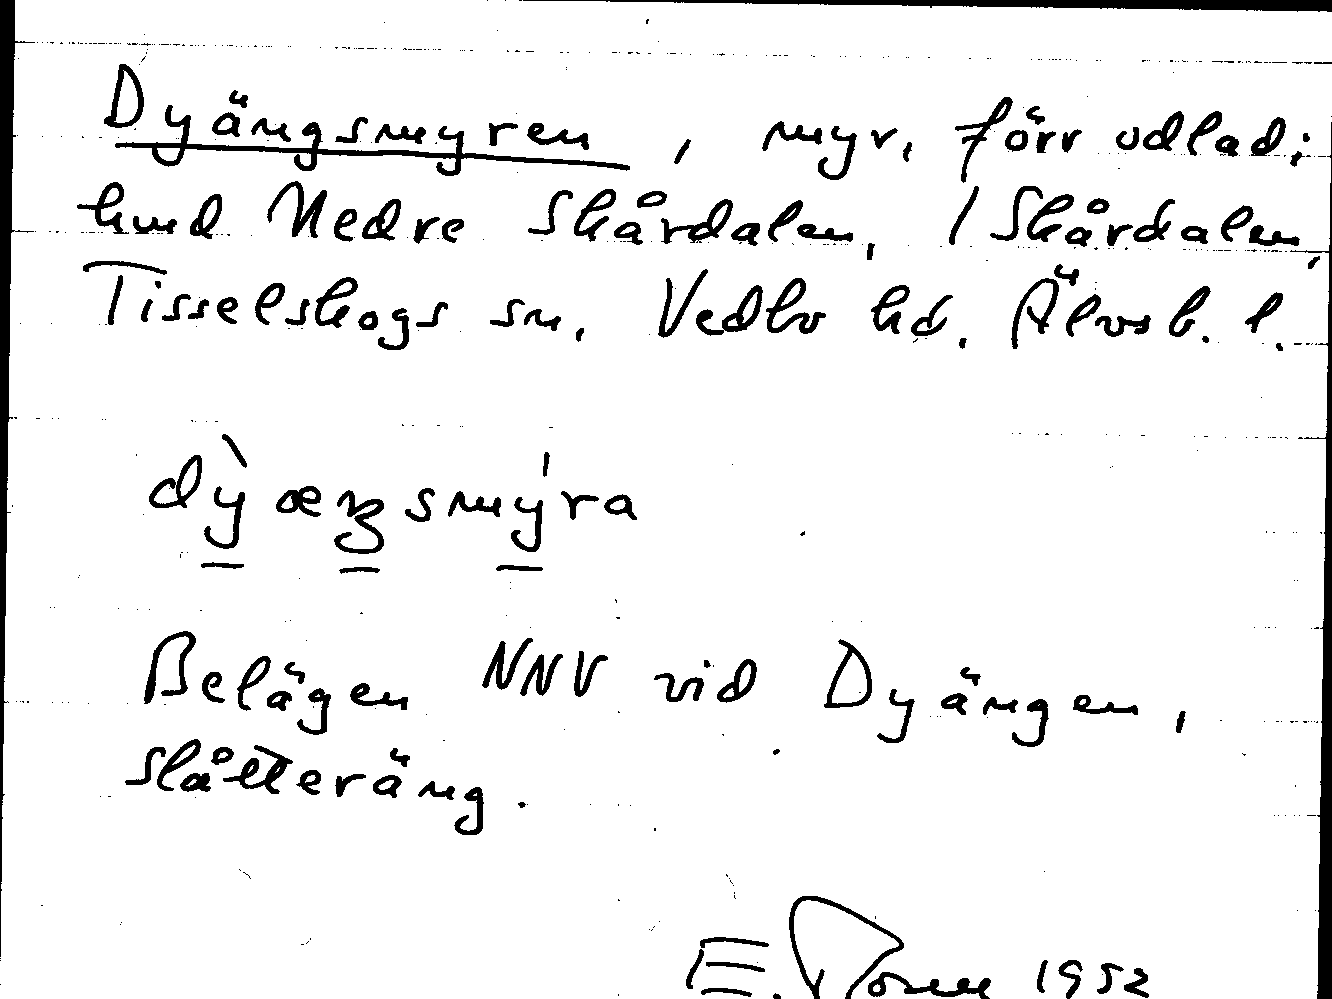 Dyängsmyren, myr, förr odlad;
hmd Nedre Skårdalen, / Skårdalen,
Tisselskogs sn, Vedbo hd. Älvsb. l.
Belägen NNV vid Dyängen,
slåtteräng.
E. 1952